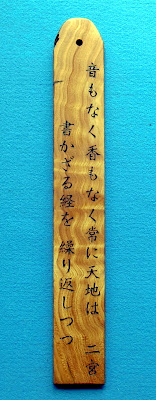 音もなく香もなく常に天地は 二宮
書かざる経を繰り返しつつ